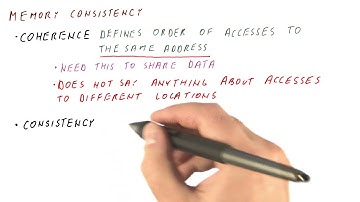 MEMORY CONSISTENCY
• COHERENCE DEFINES ORDER OF ACCESSES TO
THE SAME ADDRESS
• NEED THIS TO SHARE DATA
• DOES NOT SAY ANYTHING ABOUT ACCESSES
TO DIFFERENT LOCATIONS
• CONSISTENCY